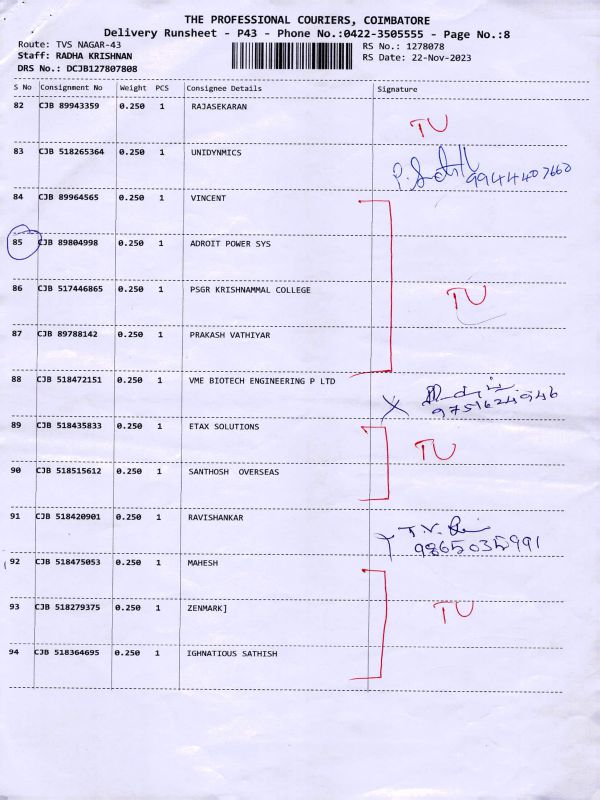 THE PROFESSIONAL COURIERS, COIMBATORE
Delivery Runsheet - P43 - Phone No.:0422-3505555 - Page No.:8
Route: TVS NAGAR-43 RS No.: 1278078
Staff: RADHA KRISHNAN RS Date: 22-Nov-2023
DRS No.: DCJB127807808
S No Consignment No Weight PCS Consignee Details Signature
82 CJB 89943359 0.250 1 RAJASEKARAN
TU
83 CJB 518265364 0.250 1 UNIDYNMICS
9944407660
84 CJB 89964565 0.250 1 VINCENT
85 CJB 89804998 0.250 1 ADROIT POWER SYS
86 CJB 517446865 0.250 1 PSGR KRISHNAMMAL COLLEGE
TU
87 CJB 89788142 0.250 1 PRAKASH VATHIYAR
88 CJB 518472151 0.250 1 VME BIOTECH ENGINEERING P LTD
9751624946
89 CJB 518435833 0.250 1 ETAX SOLUTIONS
TU
90 CJB 518515612 0.250 1 SANTHOSH OVERSEAS
91 CJB 518420901 0.250 1 RAVISHANKAR
T.V.
9865035991
92 CJB 518475053 0.250 1 MAHESH
93 CJB 518279375 0.250 1 ZENMARK]
TU
94 CJB 518364695 0.250 1 IGHNATIOUS SATHISH